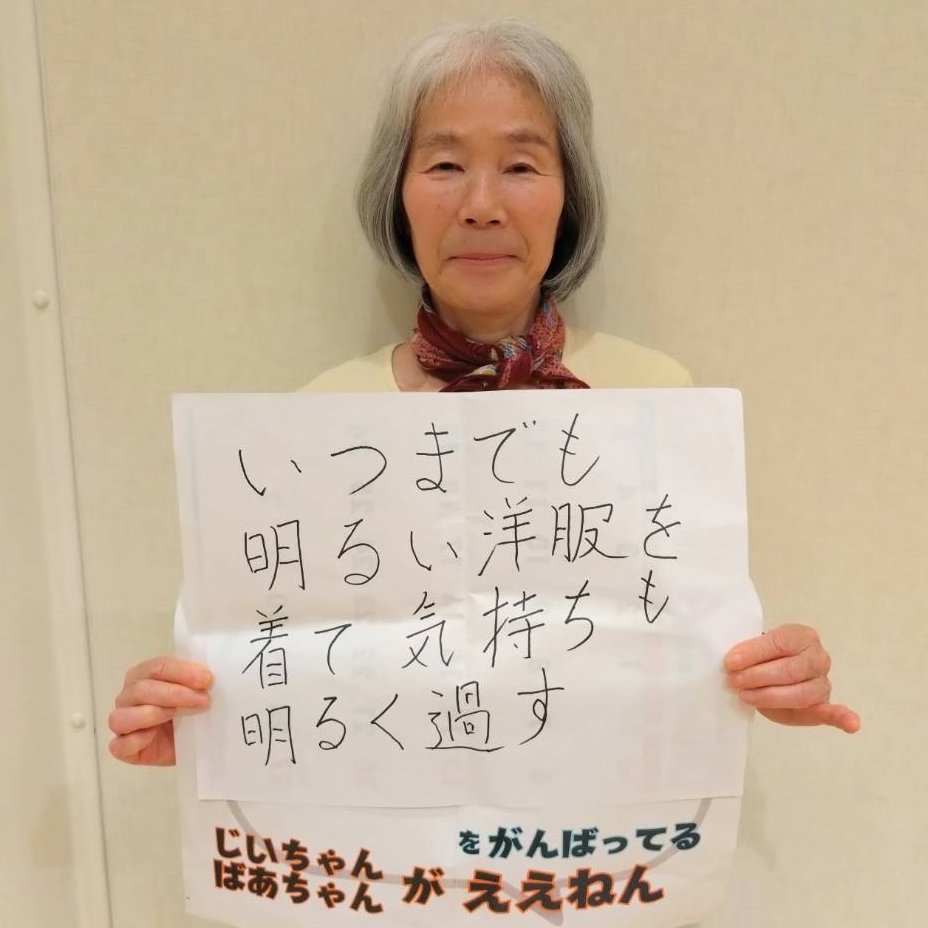 いつまでも
明るい洋服を
着て気持ちも
明るく過す
をがんばってる
じいちゃん
ばあちゃん
が ええねん